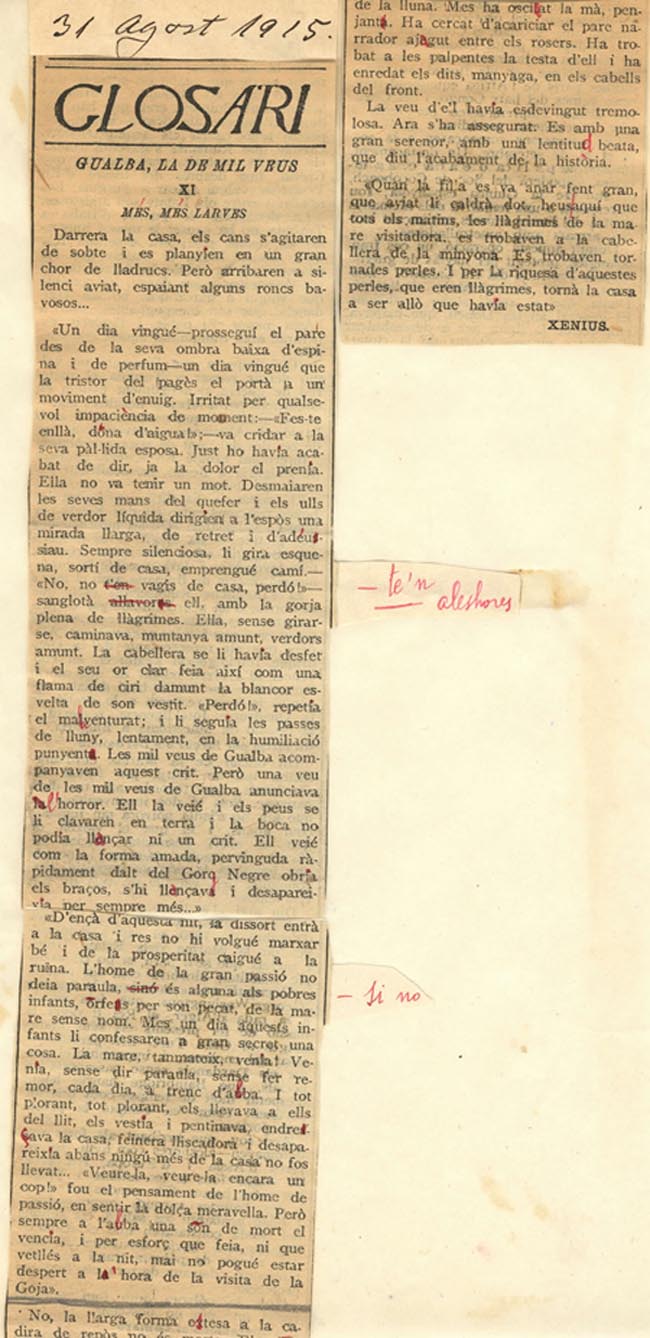 31 Agost 1915.
GLOSARI
GUALBA, LA DE MIL VEUS
XI
MÉS, MÉS LARVES
Darrera la casa, els cans s'agitaren
de sobte i es planyien en un gran
chor de lladrucs. Però arribaren a si-
lenci aviat, espaiant alguns roncs ba-
vosos...
«Un dia vingué—prosseguí el pare
des de la seva ombra baixa d'espi-
na i de perfum—un dia vingué que
la tristor del pagès el portà a un
moviment d'enuig. Irritat per qualse-
vol impaciència de moment:—«Fes-te
enllà, dòna d'aigua!»;—va cridar a la
seva pàl·lida esposa. Just ho havía aca-
bat de dir, ja la dolor el prenía.
Ella no va tenir un mot. Desmaiaren
les seves mans del quefer i els ulls
de verdor líquida dirigíen a l'espòs una
mirada llarga, de retret i d'adéus-
siau. Sempre silenciosa, li gira esque-
na, sortí de casa, emprengué camí.—
«No, no t'en vagis de casa, perdó!»—
sanglotà allavores ell, amb la gorja
plena de llàgrimes. Ella, sense girar-
se, caminava, muntanya amunt, verdors
amunt. La cabellera se li havía desfet
i el seu or clar feia així com una
flama de ciri damunt la blancor es-
velta de son vestit. «Perdó!», repetía
el malventurat; i li seguía les passes
de lluny, lentament, en la humiliació
punyenta. Les mil veus de Gualba acom-
panyaven aquest crit. Però una veu
de les mil veus de Gualba anunciava
l'horror. Ell la veié i els peus se
li clavaren en terra i la boca no
podía llençar ni un crit. Ell veié
com la forma amada, pervinguda rà-
pidament dalt del Gorg Negre obría
els braços, s'hi llençava i desaparei-
xía per sempre més...»
«D'ençà d'aquesta nit, la dissort entrà
a la casa i res no hi volgué marxar
bé i de la prosperitat caigué a la
ruïna. L'home de la gran passió no
deia paraula, sinó és alguna als pobres
infants, òrfens per son pecat, de la ma-
re sense nom. Mes un dia aquests in-
fants li confessaren a gran secret una
cosa. La mare, tanmateix, venía! Ve-
nía, sense dir paraula, sense fer re-
mor, cada dia, a trenc d'auba. I tot
plorant, tot plorant, els llevava a ells
del llit, els vestía i pentinava, endre-
çava la casa, feinera lliscadora i desapa-
reixía abans ningú més de la casa no fos
llevat... «Veure-la, veure-la encara un
cop!» fou el pensament de l'home de
passió, en sentir la dolça meravella. Però
sempre a l'auba una són de mort el
vencía, i per esforç que feia, ni que
vetllés a la nit, mai no pogué estar
despert a la hora de la visita de la
Goja».
No, la llarga forma estesa a la ca-
dira de repòs no
de la lluna. Mes ha oscilat la mà, pen-
janta. Ha cercat d'acariciar el pare na-
rrador ajagut entre els rosers. Ha tro-
bat a les palpentes la testa d'ell i ha
enredat els dits, manyaga, en els cabells
del front.
La veu d'el havía esdevingut tremo-
losa. Ara s'ha assegurat. Es amb una
gran serenor, amb una lentitud beata,
que diu l'acabament de la història.
«Quan la filla es va anar fent gran,
que aviat li caldrà dot, heusaquí que
tots els matins, les llàgrimes de la ma-
re visitadora, es trobaven a la cabe-
llera de la minyona. Es trobaven tor-
nades perles. I per la riquesa d'aquestes
perles, que eren llàgrimes, tornà la casa
a ser allò que havía estat»
XENIUS.
– te'n
aleshores
– si no